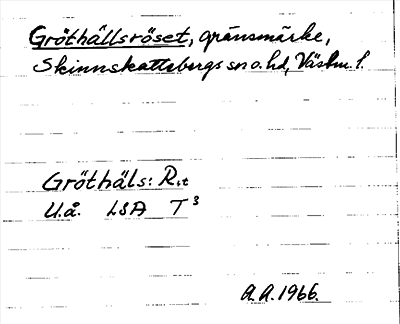 Gröthällsröset, gränsmärke,
Skinnskattebergs sn o. hd, Västm. l.
Gröthäls: R:t
U.å. LSA T³
A.A. 1966.